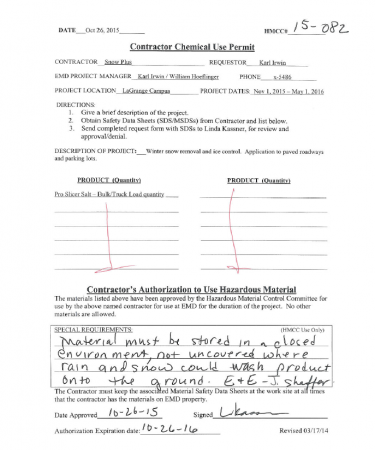 DATE Oct 26, 2015 HMCC# 15-082
Contractor Chemical Use Permit
CONTRACTOR Snow Plus REQUESTOR Karl Irwin
EMD PROJECT MANAGER Karl Irwin / William Hoeflinger PHONE x-5486
PROJECT LOCATION LaGrange Campus PROJECT DATES: Nov 1, 2015 – May 1, 2016
DIRECTIONS:
1. Give a brief description of the project.
2. Obtain Safety Data Sheets (SDS/MSDSs) from Contractor and list below.
3. Send completed request form with SDSs to Linda Kassner, for review and
approval/denial.
DESCRIPTION OF PROJECT: Winter snow removal and ice control. Application to paved roadways
and parking lots.
PRODUCT (Quantity) PRODUCT (Quantity)
Pro Slicer Salt – Bulk/Truck Load quantity
Contractor's Authorization to Use Hazardous Material
The materials listed above have been approved by the Hazardous Material Control Committee for
use by the above named contractor for use at EMD for the duration of the project. No other
materials are allowed.
SPECIAL REQUIREMENTS: (HMCC Use Only)
Material must be stored in a closed
environment, not uncovered where
rain and snow could wash product
onto the ground. E+E - J. Shaffer
The Contractor must keep the associated Material Safety Data Sheets at the work site at all times
that the contractor has the materials on EMD property.
Date Approved 10-26-15 Signed
Authorization Expiration date: 10-26-16 Revised 03/17/14